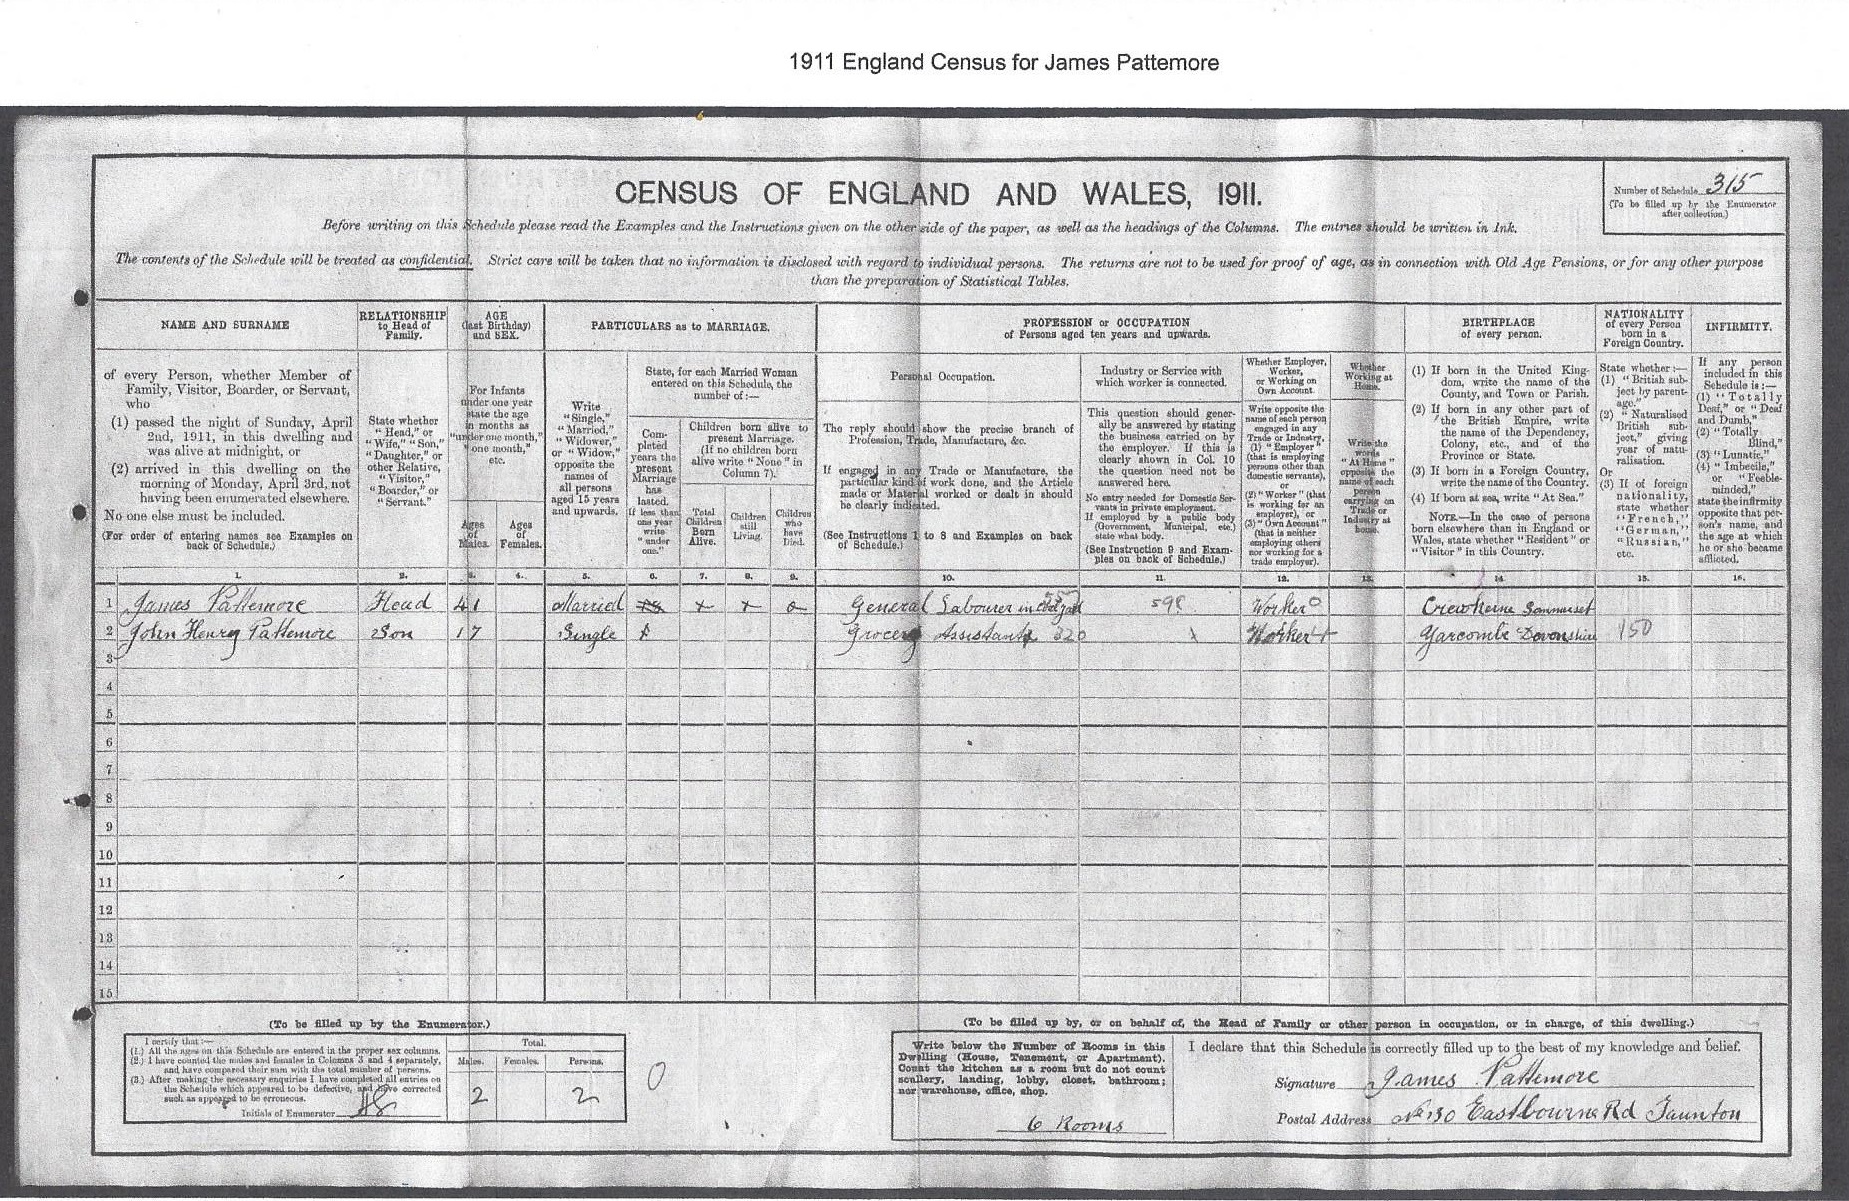 1911 England Census for James Pattemore
CENSUS OF ENGLAND AND WALES, 1911.
Number of Schedule 315
(To be filled up by the Enumerator
after collection.)
Before writing on this Schedule please read the Examples and the Instructions given on the other side of the paper, as well as the headings of the Columns. The entries should be written in Ink.
The contents of the Schedule will be treated as confidential. Strict care will be taken that no information is disclosed with regard to individual persons. The returns are not to be used for proof of age, as in connection with Old Age Pensions, or for any other purpose
than the preparation of Statistical Tables.
NAME AND SURNAME
RELATIONSHIP
to Head of
Family.
AGE
(last Birthday)
and SEX.
PARTICULARS as to MARRIAGE.
PROFESSION or OCCUPATION
of Persons aged ten years and upwards.
BIRTHPLACE
of every person.
NATIONALITY
of every Person
born in a
Foreign Country.
INFIRMITY.
of every Person, whether Member of
Family, Visitor, Boarder, or Servant,
who
(1) passed the night of Sunday, April
2nd, 1911, in this dwelling and
was alive at midnight, or
(2) arrived in this dwelling on the
morning of Monday, April 3rd, not
having been enumerated elsewhere.
No one else must be included.
(For order of entering names see Examples on
back of Schedule.)
State whether
"Head," or
"Wife," "Son,"
"Daughter," or
other Relative,
"Visitor,"
"Boarder," or
"Servant."
For Infants
under one year
state the age
in months as
"under one month,"
"one month,"
etc.
Ages
of
Males.
Ages
of
Females.
Write
"Single,"
"Married,"
"Widower,"
or "Widow,"
opposite the
names of
all persons
aged 15 years
and upwards.
State, for each Married Woman
entered on this Schedule, the
number of:—
Com-
pleted
years the
present
Marriage
has
lasted.
If less than
one year
write
"under
one."
Children born alive to
present Marriage.
(If no children born
alive write "None" in
Column 7).
Total
Children
Born
Alive.
Children
still
Living.
Children
who
have
Died.
Personal Occupation.
The reply should show the precise branch of
Profession, Trade, Manufacture, &c.
If engaged in any Trade or Manufacture, the
particular kind of work done, and the Article
made or Material worked or dealt in should
be clearly indicated.
(See Instructions 1 to 8 and Examples on back
of Schedule.)
Industry or Service with
which worker is connected.
This question should gener-
ally be answered by stating
the business carried on by
the employer. If this is
clearly shown in Col. 10
the question need not be
answered here.
No entry needed for Domestic Ser-
vants in private employment.
If employed by a public body
(Government, Municipal, etc.)
state what body.
(See Instruction 9 and Exam-
ples on back of Schedule.)
Whether Employer,
Worker,
or Working on
Own Account.
Write opposite the
name of each person
engaged in any
Trade or Industry,
(1) "Employer"
(that is employing
persons other than
domestic servants),
or
(2) "Worker" (that
is working for an
employer), or
(3) "Own Account"
(that is neither
employing others
nor working for a
trade employer).
Whether
Working at
Home.
Write the
words
"At Home"
opposite the
name of each
person
carrying on
Trade or
Industry at
home.
(1) If born in the United King-
dom, write the name of the
County, and Town or Parish.
(2) If born in any other part of
the British Empire, write
the name of the Dependency,
Colony, etc., and of the
Province or State.
(3) If born in a Foreign Country,
write the name of the Country.
(4) If born at sea, write "At Sea."
NOTE.—In the case of persons
born elsewhere than in England or
Wales, state whether "Resident" or
"Visitor" in this Country.
State whether:—
(1) "British sub-
ject by parent-
age."
(2) "Naturalised
British sub-
ject," giving
year of natu-
ralisation.
Or
(3) If of foreign
nationality,
state whether
"French,"
"German,"
"Russian,"
etc.
If any person
included in this
Schedule is:—
(1) "Totally
Deaf," or "Deaf
and Dumb,"
(2) "Totally
Blind,"
(3) "Lunatic,"
(4) "Imbecile,"
or "Feeble-
minded,"
state the infirmity
opposite that per-
son's name, and
the age at which
he or she became
afflicted.
1. 2. 3. 4. 5. 6. 7. 8. 9. 10. 11. 12. 13. 14. 15. 16.
1 James Pattemore Head 41 Married General Labourer in Worker Crewkerne Sommerset
2 John Henry Pattemore Son 17 Single Grocery Assistant 320 Worker Yarcombe Devonshire 150
3
4
5
6
7
8
9
10
11
12
13
14
15
(To be filled up by the Enumerator.)
I certify that:—
(1.) All the ages on this Schedule are entered in the proper sex columns.
(2.) I have counted the males and females in Columns 3 and 4 separately,
and have compared their sum with the total number of persons.
(3.) After making the necessary enquiries I have completed all entries on
the Schedule which appeared to be defective, and have corrected
such as appeared to be erroneous.
Initials of Enumerator
Total.
Males. Females. Persons.
2 2
0
(To be filled up by, or on behalf of, the Head of Family or other person in occupation, or in charge, of this dwelling.)
Write below the Number of Rooms in this
Dwelling (House, Tenement, or Apartment).
Count the kitchen as a room but do not count
scullery, landing, lobby, closet, bathroom;
nor warehouse, office, shop.
6 Rooms
I declare that this Schedule is correctly filled up to the best of my knowledge and belief.
Signature James Pattemore
Postal Address No 130 Eastbourne Rd Taunton